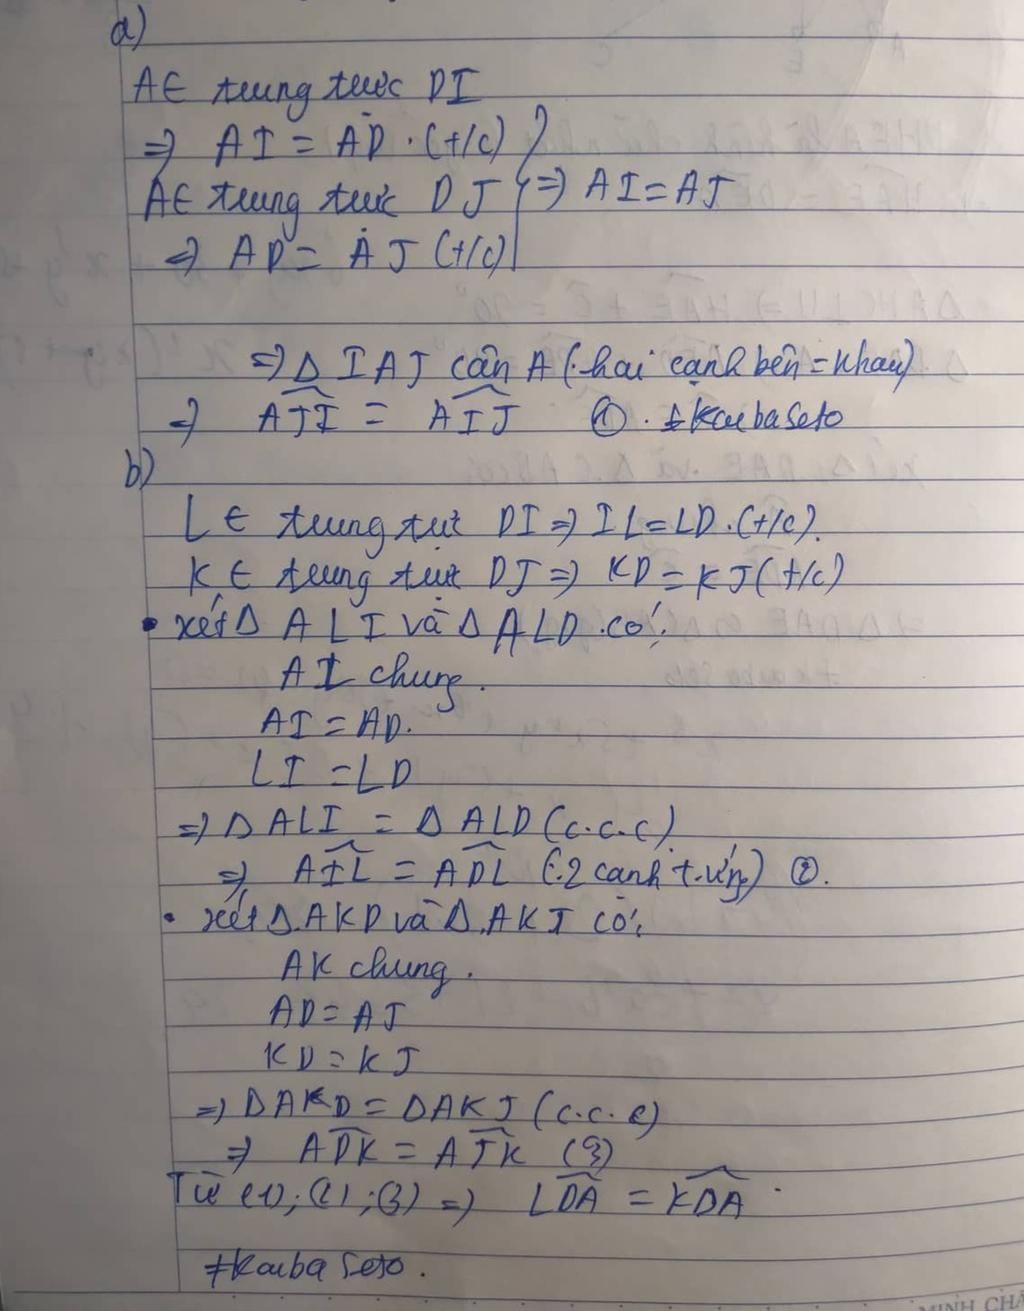 a)
A∈ trung trực DI
=> AI = AD. (t/c)
A∈ trung trực DJ => AI = AJ
=> AD = AJ (t/c)
=> Δ IAJ cân A (hai cạnh bên = nhau)
=> AJI = AIJ ①. #KaibaSeto
b)
L∈ trung trực DI => IL = LD. (t/c).
K∈ trung trực DJ => KD = KJ (t/c)
• xét Δ ALI và Δ ALD có:
AI chung.
AI = AD.
LI = LD
=> Δ ALI = Δ ALD (c.c.c)
=> AIL = ADL (2 cạnh t.ứng) ②.
• xét Δ AKD và Δ AKJ có:
AK chung.
AD = AJ
KD = KJ
=> Δ AKD = Δ AKJ (c.c.c)
=> ADK = AJK (3)
Từ (1); (2); (3) => LDA = KDA.
#Kaiba Seto.
MINH CHÂ